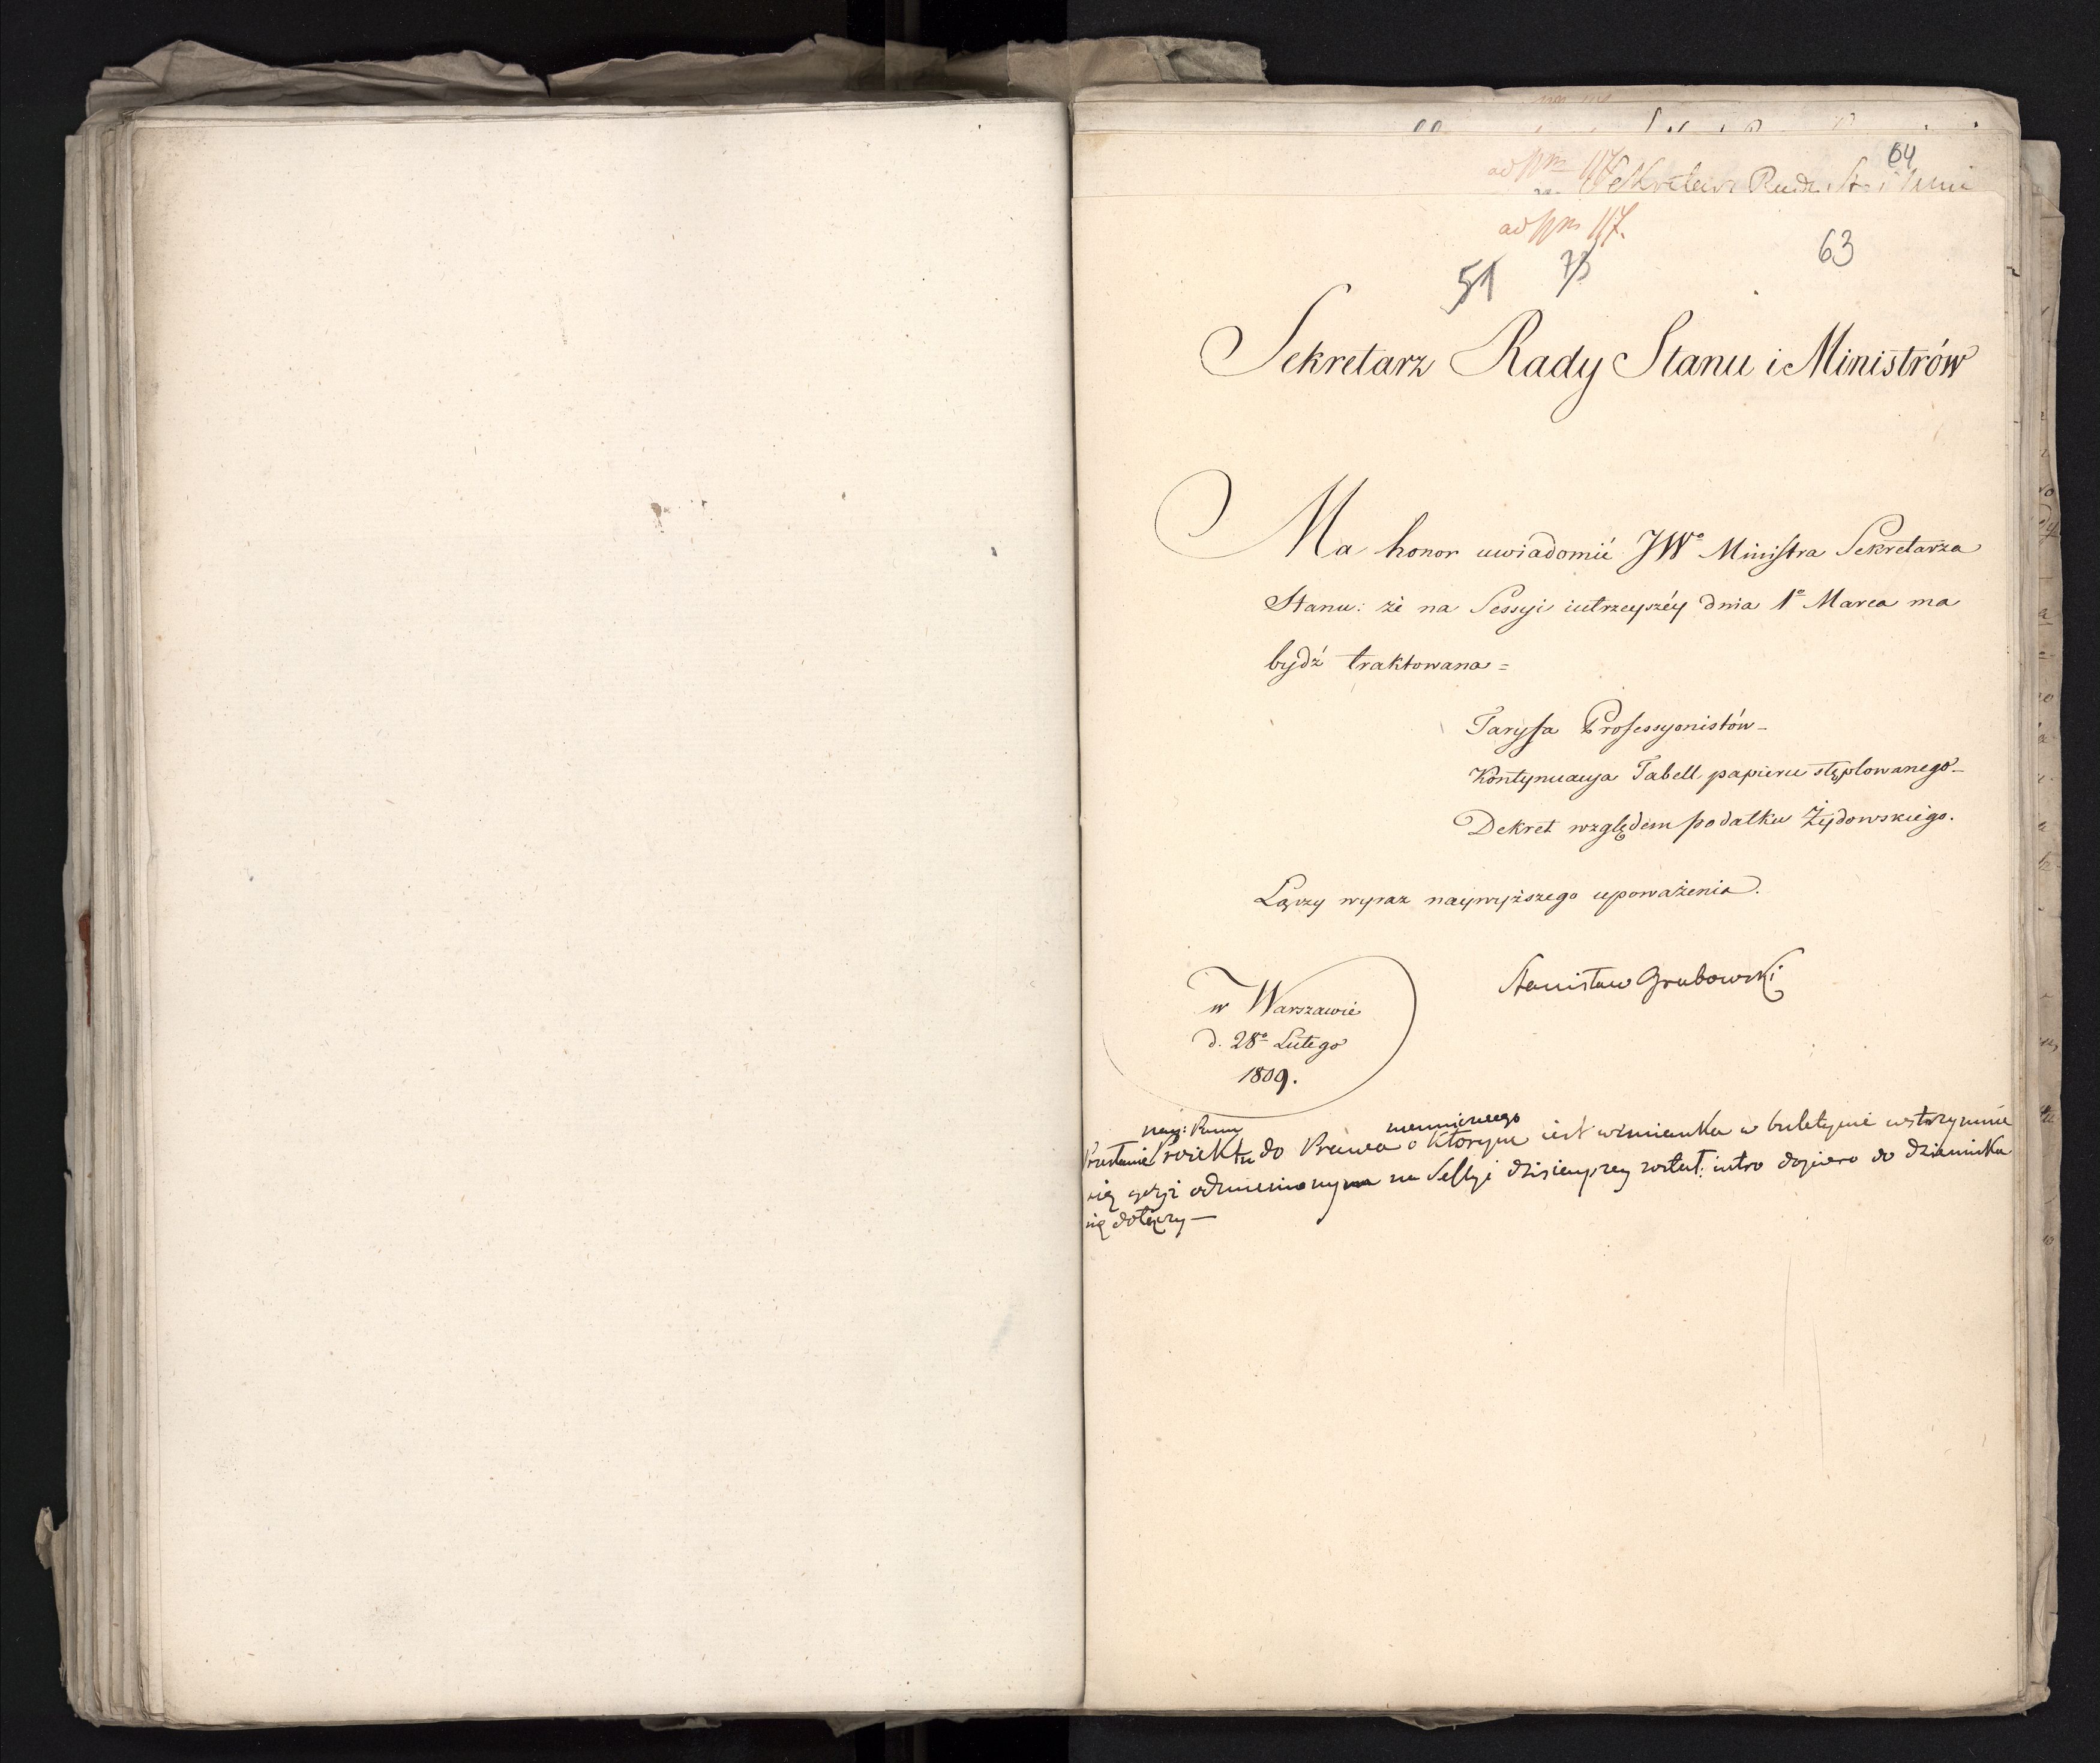 64
ad N 117
Sekretarz Rady St. i Mini
ad N 117.
51 73
63
Sekretarz Rady Stanu i Ministrów
Ma honor uwiadomić JWº Ministra Sekretarza
Stanu: że na Sessyi iutrzeyszéy dnia 1º Marca ma
bydź traktowana =
Taryffa Professyonistów –
Kontynuacya Tabell papieru stęplowanego –
Dekret względem podatku Żydowskiego.
Łączy wyraz naywyższego upoważenia.
Stanisław Grabowski
w Warszawie
d. 28º Lutego
1809.
Przesłanie Proiektu do Prawa o którym iest wzmianka w buletynie wstrzymuie
się gdyż odmienionym na Sessyi dzisieyszey został: iutro dopiero do dziennika
się dołączy —